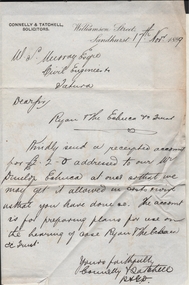 CONNELLY & TATCHELL,
SOLICITORS.
Williamson Street,
Sandhurst, 17th Nov. 1889
W. S. Murray Esqre
Civil Engineer
Tatura
Dear Sir
Ryan v The Echuca
Kindly send a receipted account
for £2-2-0 addressed to our Mr
Echuca at once so that we
may get it allowed in
us that you have done so. The account
is for preparing plans for use on
the hearing of case Ryan v The Echuca
& Trust.
Yours faithfully
Connelly & Tatchell